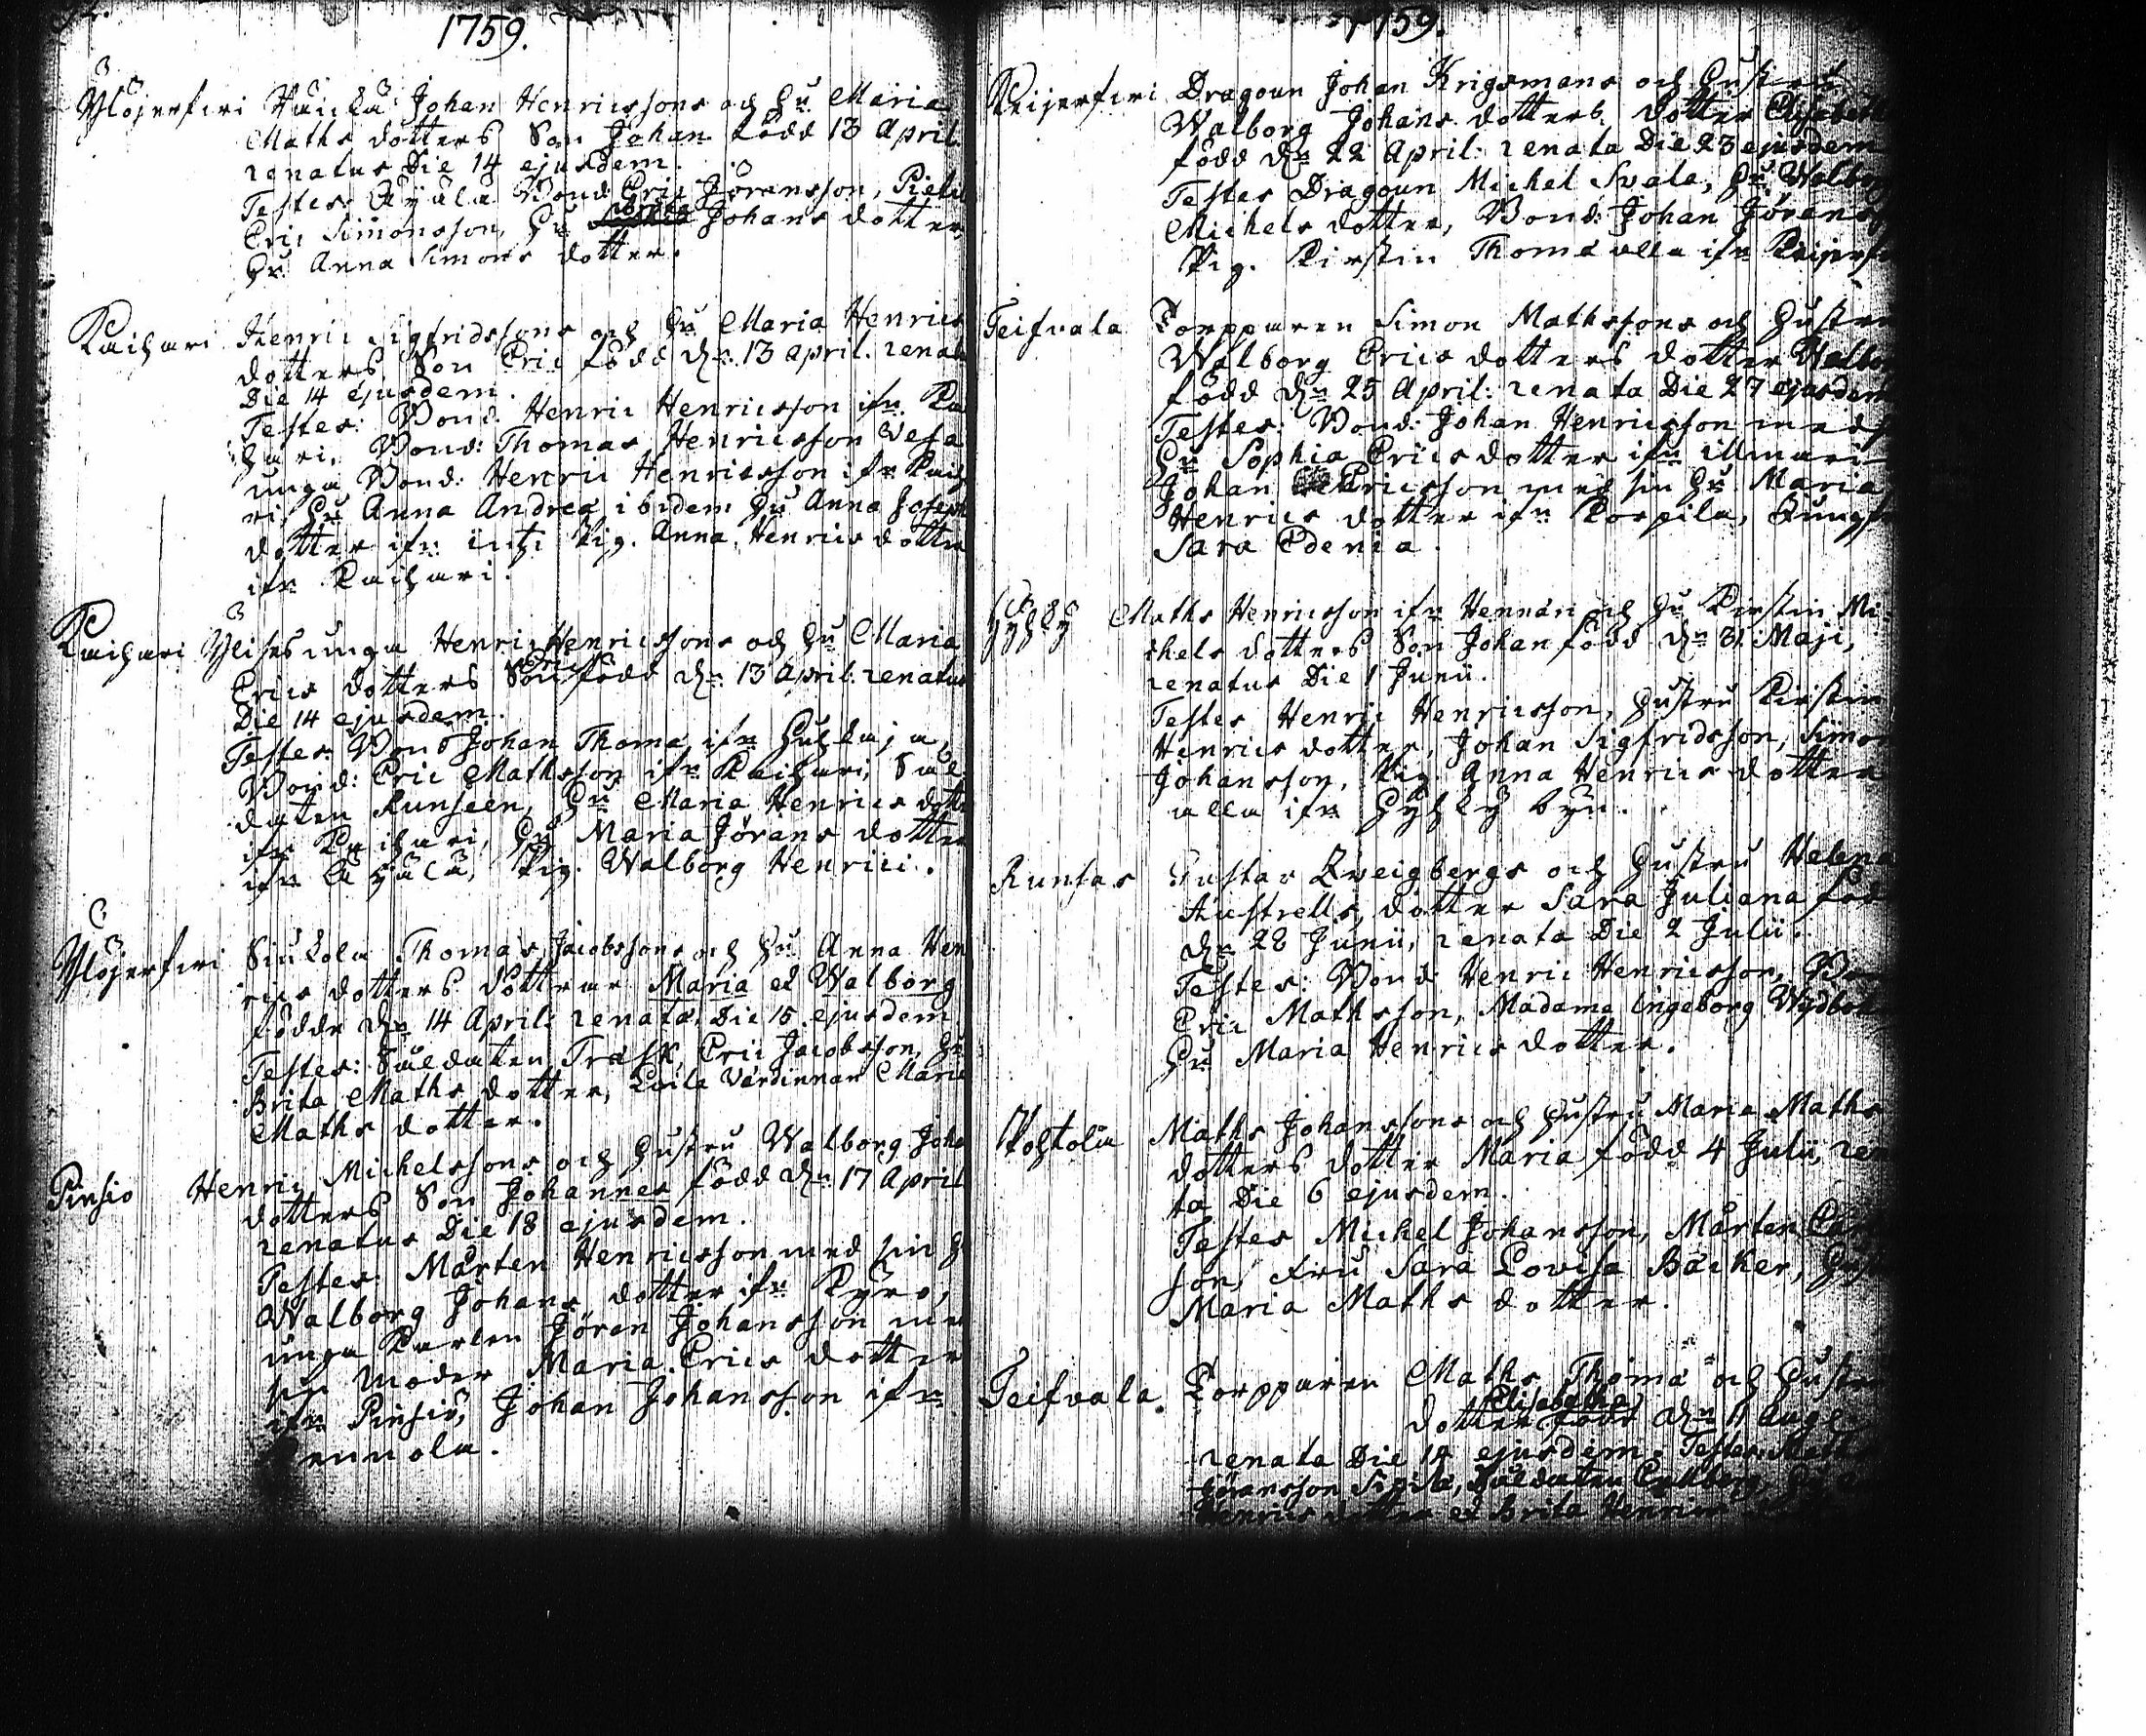 1759.
Ylöjerfwi Johan Henricssons och Hu: Maria
Maths dotters Son Johan född 13 April.
renatus Die 14 ejusdem.
Testes: Bond: Eric Jöransson,
Eric Simonsson, Hu Johans dotter,
Hu. Anna Simons dotter.
Kaihari Henric Sigfridssons och Hu Maria Henrics
dotters Son Eric född dn: 13 april. renatus
Die 14 ejusdem.
Testes: Bond: Henric Henricsson ifn.
hari, Bond: Thomas Henricsson Vesa
unga Bond: Henric Henricsson ifn Kaiha
ri, Hu Anna Andreæ ibidem Hu Anna Joseph
dotter ifn Pig. Anna Henrics dotter
ifn Kaihari.
Kaihari unga Henric Henricssons och Hu Maria
Erics dotters Son Eric född dn: 13 April: renatus
Die 14 ejusdem.
Testes: Bond Johan Thomæ ifn
Bond: Eric Mathsson ifn Kaihari, Sol
daten Runfeen, Hu Maria Henrics dotter
ifn Kaihari, Hu Maria Jörans dotter
ifn Pig. Walborg Henrici.
Ylöjerfwi Thomas Jacobssons och Hu Anna Hen
rics dotters döttrar Maria et Walborg
födde dn 14 April: renatæ Die 15 ejusdem
Testes: Soldaten Träsk, Eric Jacobsson, Hu
Brita Maths dotter, Värdinnan Maria
Maths dotter.
Pinsiö Henric Michelssons och hustru Walborg Joha
dotters Son Johannes född dn: 17 April
renatus Die 18 ejusdem.
Testes: Mårten Henricsson med sin H
Walborg Johans dotter ifn Kyro,
unga Karlen Jören Johansson med
sin Moder Maria Erics dotter
ifn Pinsiö, Johan Johansson ifn
1759.
Keijerfwi Dragoun Johan Krigsmans och Hustrus
Walborg Johans dotters dotter Elisabeth
född dn 22 April: renata Die 23 ejusdem
Testes Dragoun Michel Svala, Hu Walborg
Michels dotter, Bond: Johan Jörens
Pig. Kirstin Thomæ alla ifn Keijerfwi
Teifvala Torpparen Simon Mathssons och Hustru
Walborg Erics dotters dotter Walborg
född dn 25 April: renata Die 27 ejusdem
Testes: Bond: Johan Henricsson med
Hu Sophia Ericsdotter ifn illmari
Johan Ericsson med sin Hu Maria
Henrics dotter ifn Korpila, Jungfr
Sara Edenia.
Hyhky Maths Henricsson ifn Hennäri och Hu Kirstin Mi-
chels dotters Son Johan född dn 31 Maji,
renatus Die 1 Junii.
Testes Henric Henricsson, Hustru Kirstin
Henrics dotter, Johan Sigfridsson, Simon
Johansson, Pig. Anna Henrics dotter
alla ifn Hyhky byn.
Runsas Gustav Zweigbergs och Hustru Helena
Austrells dotter Sara Juliana född
dn 28 Junii, renata Die 2 Julii.
Testes: Bond: Henric Henricsson, Bond
Eric Mathsson, Madama Ingeborg
Hu Maria Henrics dotter.
Pohtola Maths Johanssons och Hustru Maria Maths
dotters dotter Maria född 4 Julii, rena
ta Die 6 ejusdem.
Testes Michel Johansson, Mårten
son, Fru Sara Lovisa Bäcker, Hustru
Maria Maths dotter.
Teifvala. Torpparen Maths Thomæ och Hustru
dotter Elisabetha född dn 11 Aug:
renata Die 12 ejusdem. Testes: Matts
Jöransson Sipilä, Soldaten
Henrics dotter et Brita Henrics